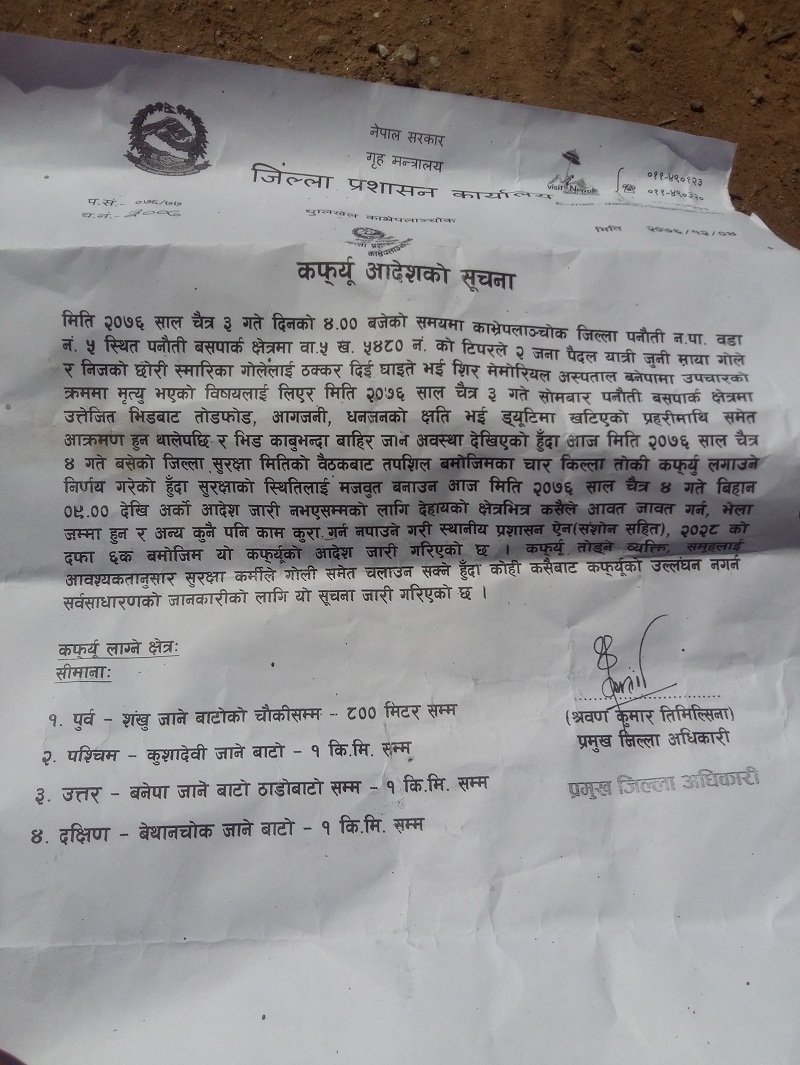 नेपाल सरकार
गृह मन्त्रालय
जिल्ला प्रशासन कार्यालय
Visit Nepal
०११-४९०१२३
०११-४९०३२०
प.सं.- ०७६/७७
च.नं.-
धुलिखेल काभ्रेपलाञ्चोक
मिति २०७६/१२/०४
कर्फ्यू आदेशको सूचना
मिति २०७६ साल चैत्र ३ गते दिनको ४.०० बजेको समयमा काभ्रेपलाञ्चोक जिल्ला पनौती न.पा. वडा
नं. ५ स्थित पनौती बसपार्क क्षेत्रमा वा.५ ख. ५४८० नं. को टिपरले २ जना पैदल यात्री जुनी माया गोले
र निजको छोरी स्मारिका गोलेलाई ठक्कर दिई घाइते भई शिर मेमोरियल अस्पताल बनेपामा उपचारको
क्रममा मृत्यु भएको विषयलाई लिएर मिति २०७६ साल चैत्र ३ गते सोमबार पनौती बसपार्क क्षेत्रमा
उत्तेजित भिडबाट तोडफोड, आगजनी, धनजनको क्षति भई ड्यूटिमा खटिएको प्रहरीमाथि समेत
आक्रमण हुन थालेपछि र भिड काबुभन्दा बाहिर जान अवस्था देखिएको हुँदा आज मिति २०७६ साल चैत्र
४ गते बसेको जिल्ला सुरक्षा मितिको वैठकबाट तपशिल बमोजिमका चार किल्ला तोकी कर्फ्यु लगाउने
निर्णय गरेको हुँदा सुरक्षाको स्थितिलाई मजवुत बनाउन आज मिति २०७६ साल चैत्र ४ गते बिहान
०९.०० देखि अर्को आदेश जारी नभएसम्मको लागि देहायको क्षेत्रभित्र कसैले आवत जावत गर्न, भेला
जम्मा हुन र अन्य कुनै पनि काम कुरा गर्न नपाउने गरी स्थानीय प्रशासन ऐन(संशोन सहित), २०२८ को
दफा ६क बमोजिम यो कर्फ्यूको आदेश जारी गरिएको छ । कर्फ्यू तोड्ने व्यक्ति, समूहलाई
आवश्यकतानुसार सुरक्षा कर्मीले गोली समेत चलाउन सक्ने हुँदा कोही कसैबाट कर्फ्यूको उल्लंघन नगर्न
सर्वसाधारणको जानकारीको लागि यो सूचना जारी गरिएको छ ।
कर्फ्यू लाग्ने क्षेत्रः
सीमानाः
१. पुर्व - शंखु जाने बाटोको चौकीसम्म - ८०० मिटर सम्म
२. पश्चिम - कुशादेवी जाने बाटो - १ कि.मि. सम्म
३. उत्तर - बनेपा जाने बाटो ठाडोबाटो सम्म - १ कि.मि. सम्म
४. दक्षिण - बेथानचोक जाने बाटो - १ कि.मि. सम्म
(श्रवण कुमार तिमिल्सिना)
प्रमुख जिल्ला अधिकारी
प्रमुख जिल्ला अधिकारी